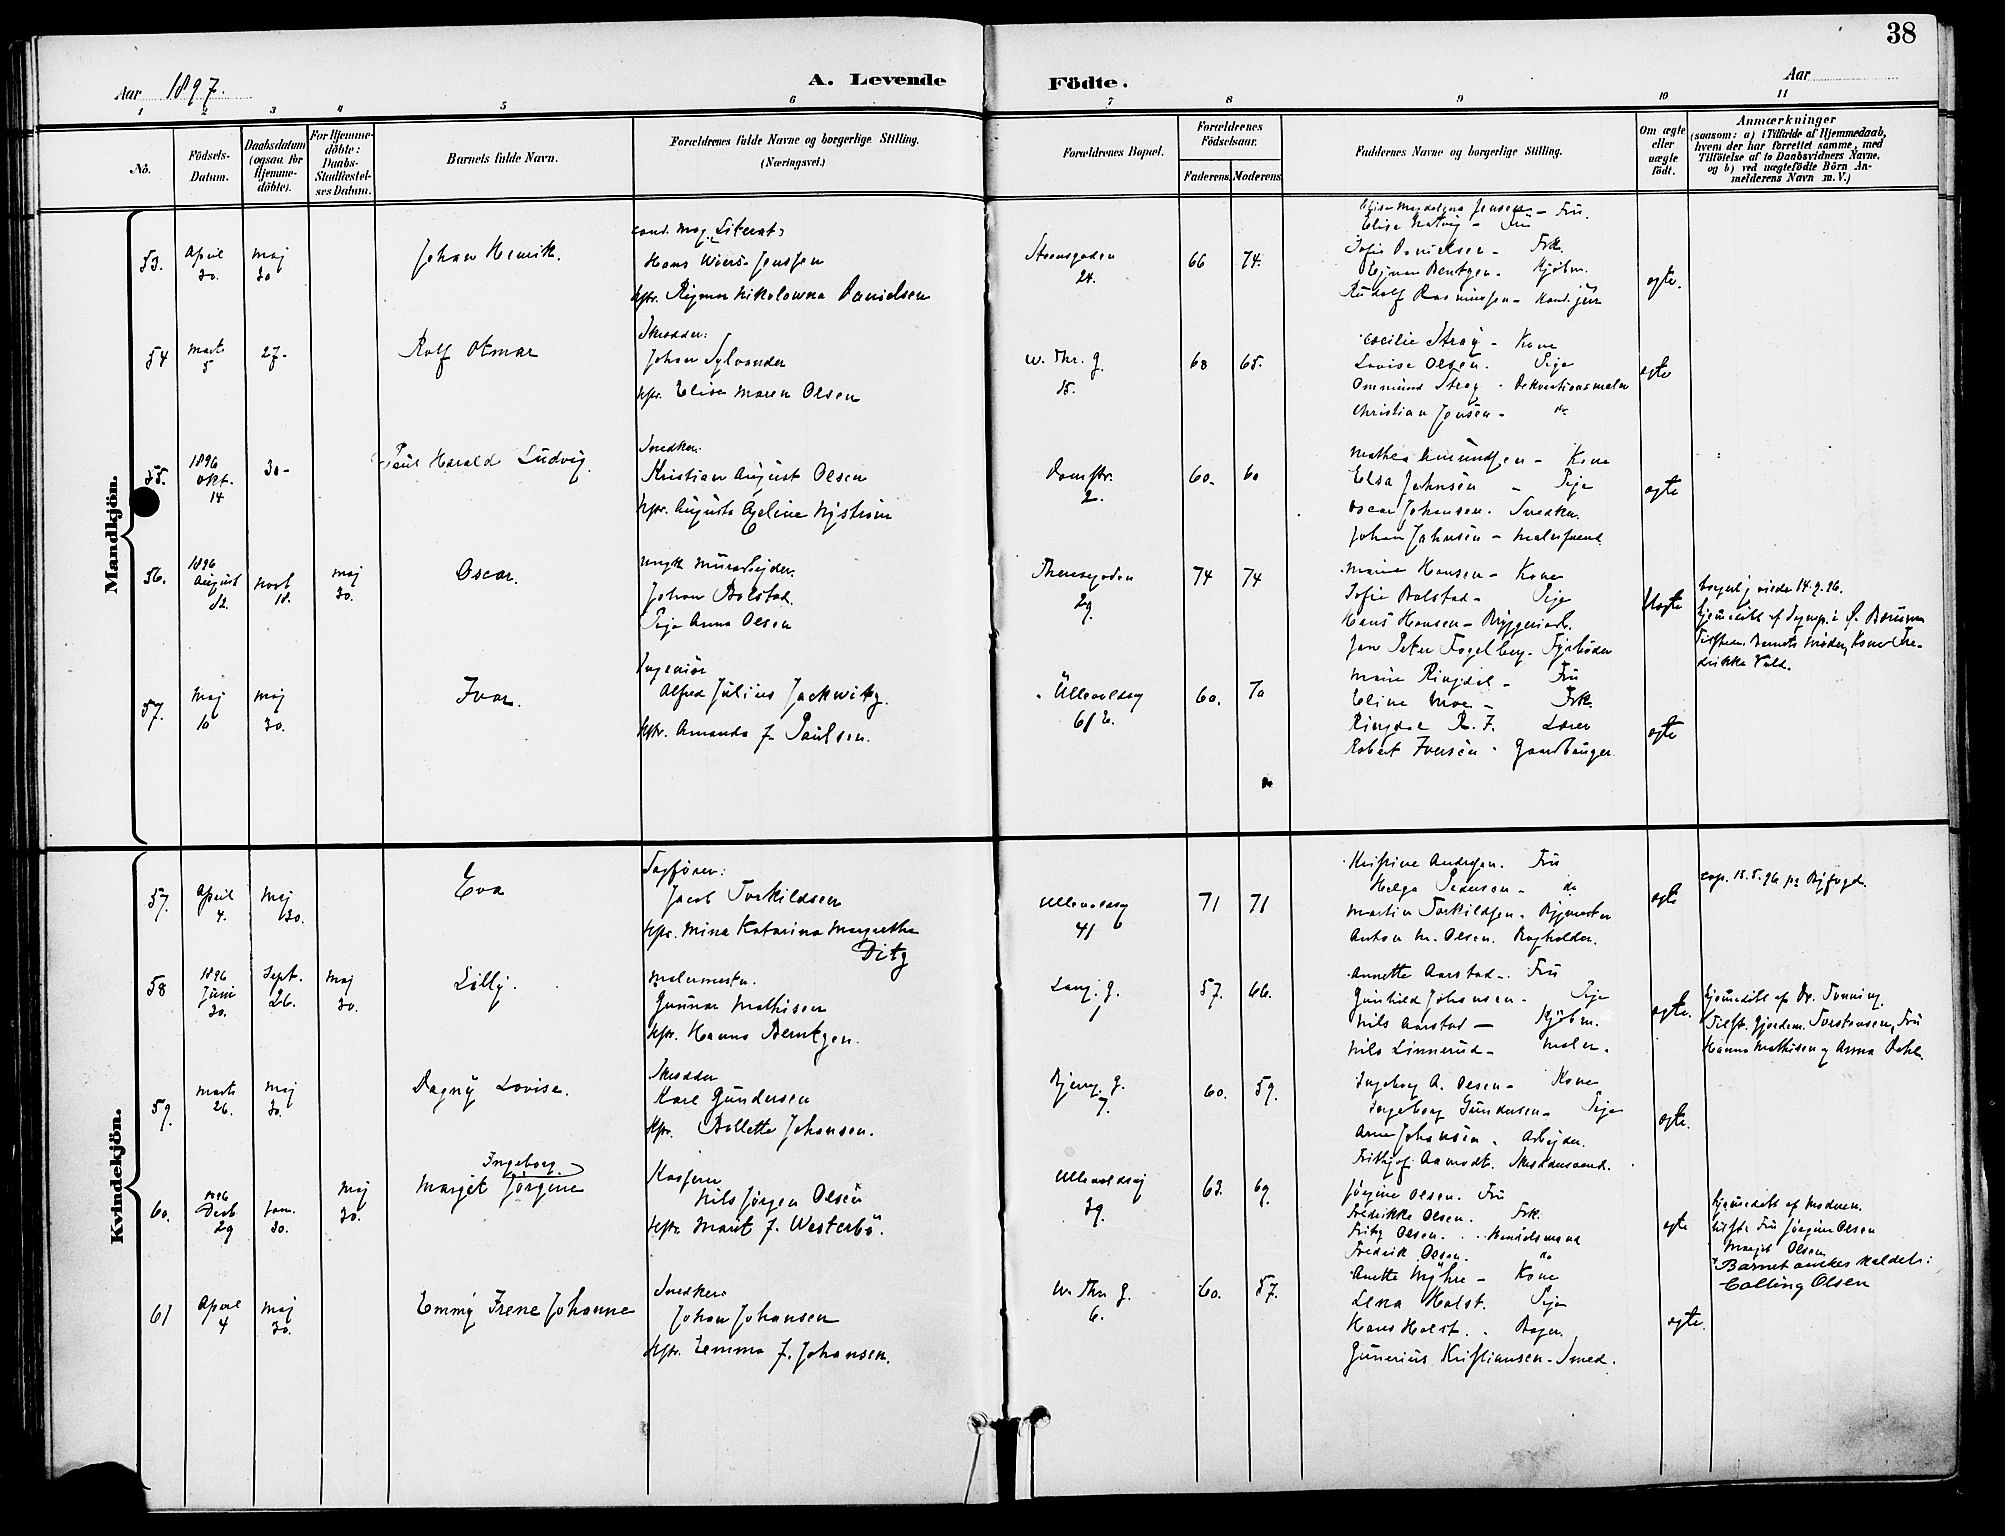 38
Aar 1897.
A. Levende
Födte.
Aar
1 2 3 4 5 6 7 8 9 10 11
No.
Födsels-
Datum.
Daabsdatum
(ogsaa for
Hjemme-
döbte).
For Hjemme-
döbte:
Daabs-
Stadfæstel-
ses Datum.
Barnets fulde Navn.
Forældrenes fulde Navne og borgerlige Stilling.
(Næringsvei.)
Forældrenes Bopæl.
Forældrenes
Födselsaar.
Faderens. Moderens.
Faddernes Navne og borgerlige Stilling.
Om ægte
eller
uægte
födt.
Anmærkninger
(saasom: a) i Tilfælde af Hjemmedaab,
hvem der har forrettet samme, med
Tilföielse af to Daabsvidners Navne,
og b) ved uægtefödte Börn An-
melderens Navn m. V.)
Mandkjön.
53.
April
30.
Maj
30
Johan Henrik.
cand. mag. Literat:
Hans Wiers-Jenssen
Hstr. Ragna Nikolowna Danielsen
Stensgaden
24.
66 74.
Elise Magdalena Jensen - Fru.
Elise - Fru
Sofie Danielsen - Frk.
Ejnar Bentzen - Kjøbm.
Rudolf Rasmussen - Kand. jur
ægte.
54
Marts
5
27-
Rolf Otmar
Skrædder:
Johan Sylvander
Hstr. Elise Maren Olsen
W. Thr. g.
15.
68 65.
Cæcilie Stray - Kone
Lovise Olsen. Pige
Ommund Stray - Dekorationsmaler
Christian Jensen - do
ægte
55.
1896
Okt.
14
30-
Paul Harald Ludvig.
Snedker:
Kristian August Olsen
Hstr. Augusta Nystrøm
Damstr.
2.
60. 60
Mathea Amundsen - Kone
Elsa Johnsen - Pige
Oscar Johansen. Snedker.
Johan Johnsen - Malersvend.
ægte
56.
1896
August
12.
Novb
18.
Maj
30.
Oscar.
Ungk. Murarbejder.
Johan Bolstad.
Pige Anna Olsen
Theresegaden
29.
74 74
Marie Hansen - Kone
Sofie Bolstad - Pige
Hans Hansen - Bryggeriarb.
Jan Peter Fogelberg - Fyrbøder
Uægte
borgerlig viede 14.9.96.
Hjemmedøbt af Sognep. i Ø. Bærum
Tilstede: Barnets Moder, Kone Fre-
drikke Vold.
57.
Maj
10
Maj
30.
Ivar.
Ingeniør
Alfred Julius Jackwitz.
Hstr. Amanda J. Paulsen.
Ullevoldsv
61 E.
60. 70
Marie Ringdal - Fru
Eline Moe - Frk.
Ringdal R. F. Lærer
Robert Iversen - Gaardbruger.
ægte
Kvindekjön.
57.
April
4.
Maj
30.
Eva
Sagfører:
Jacob Torkildsen
Hstr. Mina Katarina Margrethe
Ditz
Ullevoldsv
41 b
71 71
Kristine Andersen. Fru
Helga Pedersen - do
Martin Torkildsen. Bygmester
Anton M. Olsen. Bogholder.
ægte
cop. 15.5.96 paa Byfogd.
58
1896
Juni
30.
Sept.
26.
Maj
30.
Lilly.
Malermester.
Gunnar Mathisen
Hstr. Hanna Berntzen.
Lang. g.
7
57. 66.
Annette Aarstad - Fru
Gunhild Johansen - Pige
Nils Aarstad - Kjøbm.
Nils Linnerud - Maler.
ægte.
Hjemmedøbt af Dr. Tønning.
Tilst. Gjordem. Torstensen, Fru
Hanna Mathisen og Anna Dahl.
59.
Marts
26.
Maj
30.
Dagny Lovise.
Skrædder
Karl Gundersen
Hstr. Bollette Johansen.
Bjerg. g.
7.
60. 59.
Ingeborg A. Olsen - Kone
Ingeborg Gundersen - Pige
Arne Johansen. Arbejder.
Frithjof Aamodt. Skræddersvend.
ægte.
60.
1896
Decb
29
Jan.
30.
Maj
30.
Ingeborg
Marget Jørgine
Kasserer
Nils Jørgen Olsen
Hstr. Marit J. Westerbø.
Ullevoldsvej
39.
63. 69.
Jørgine Olsen. Fru
Fredrikke Olsen. Frk.
Fritz Olsen. . . Handelsmand
Fredrik Olsen. do
ægte
Hjemmedøbt af Moderen.
tilst. Fru Jørgine Olsen
Margit Olsen
Barnet ønskes kaldet:
Colling Olsen
61
April
4
Maj
30.
Emmy Irene Johanne
Snedker
Johan Johansen
Hstr. Emma J. Johansen.
W. Thr g.
6.
60. 57.
Anette Myhre - Kone
Lena Holst. Pige
Hans Holst. . Bager.
Gunerius Kristiansen - Smed.
ægte.